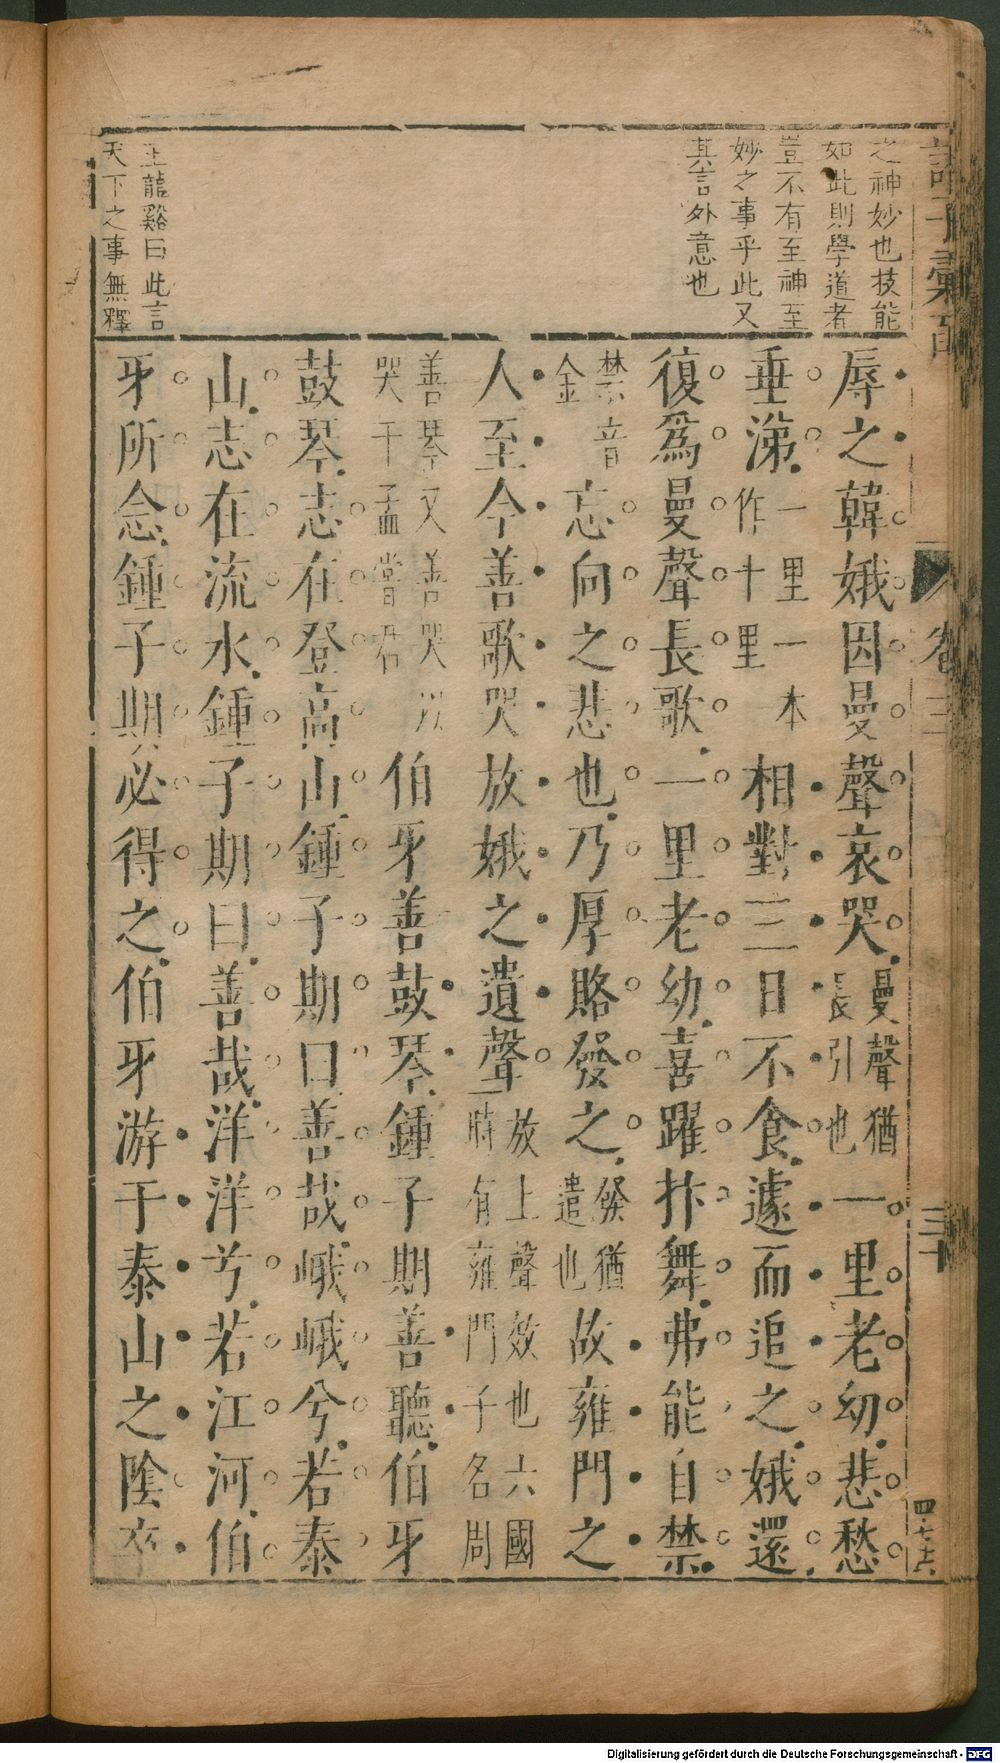 之神妙也技能
如此則學道者
豈不有至神至
妙之事乎此又
其言外意也
王龍谿曰此言
天下之事無釋
辱之韓娥因曼聲哀哭曼聲猶長引也一里老幼悲愁
垂涕一里一本作十里相對三日不食遽而追之娥還
復爲曼聲長歌一里老幼喜躍抃舞弗能自禁
禁音金忘向之悲也乃厚賂發之發猶遣也故雍門之
人至今善歌哭放娥之遺聲放上聲效也六國時有雍門子名周
善琴又善哭以哭干孟嘗君伯牙善鼓琴鍾子期善聽伯牙
鼓琴志在登高山鍾子期曰善哉峨峨兮若泰
山志在流水鍾子期曰善哉洋洋兮若江河伯
牙所念鍾子期必得之伯牙游于泰山之陰卒
卷三
三十
四七六
Digitalisierung gefördert durch die Deutsche Forschungsgemeinschaft - DFG